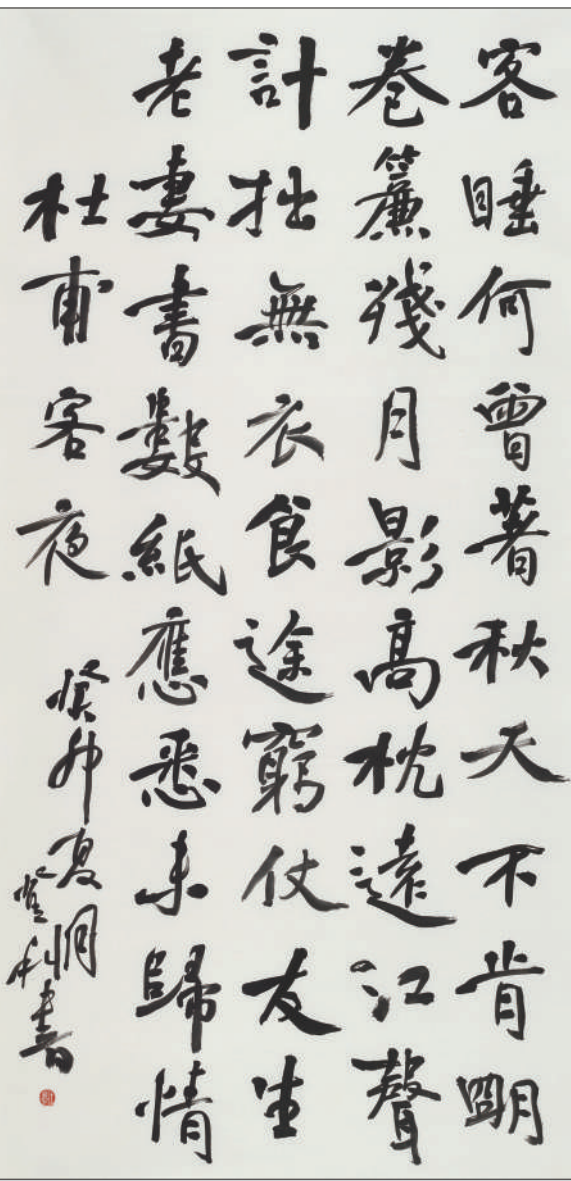 客睡何曾著秋天不肯明
卷簾殘月影高枕遠江聲
計拙無衣食途窮仗友生
老妻書數紙應悉未歸情
杜甫客夜
癸卯夏
利書